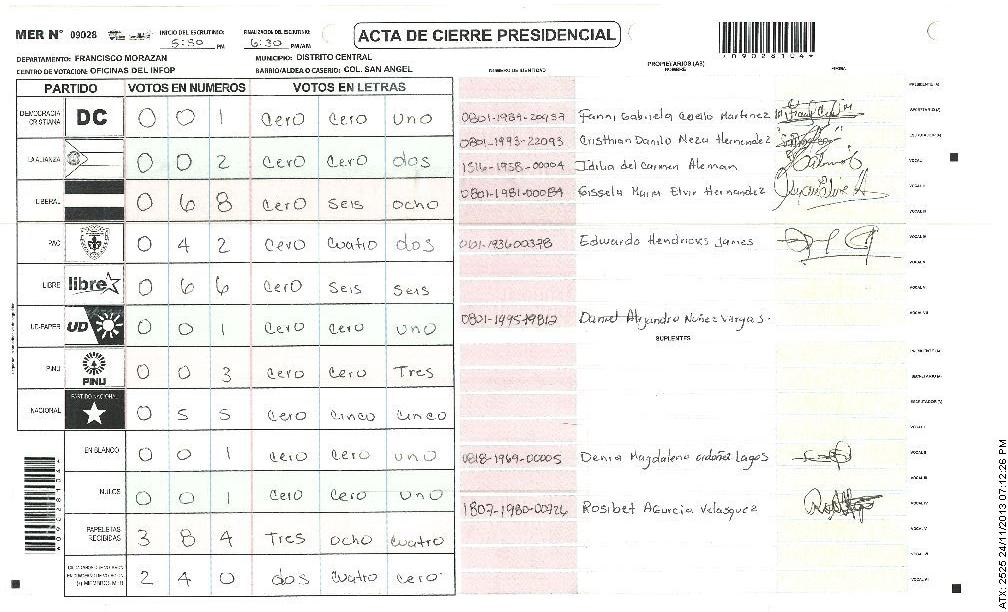 MER N° 09028
INICIO DEL ESCRUTINIO: 5:50 PM
FINALIZACION DEL ESCRUTINIO: 6:30 PM/AM
ACTA DE CIERRE PRESIDENCIAL
*09028104*
DEPARTAMENTO: FRANCISCO MORAZAN
MUNICIPIO: DISTRITO CENTRAL
CENTRO DE VOTACION: OFICINAS DEL INFOP
BARRIO/ALDEA O CASERIO: COL. SAN ANGEL
PARTIDO VOTOS EN NUMEROS VOTOS EN LETRAS
DEMOCRACIA CRISTIANA DC 0 0 1 cero cero uno
LA ALIANZA 0 0 2 cero cero dos
LIBERAL 0 6 8 cero seis ocho
PAC 0 4 2 cero cuatro dos
LIBRE libre 0 6 6 cero seis seis
UD-FAPER UD 0 0 1 cero cero uno
PINU PINU 0 0 3 cero cero Tres
NACIONAL PARTIDO NACIONAL 0 5 5 cero cinco cinco
EN BLANCO 0 0 1 cero cero uno
NULOS 0 0 1 cero cero uno
PAPELETAS RECIBIDAS 3 8 4 Tres ocho cuatro
2 4 0 dos cuatro cero
*09028104*
NUMERO DE IDENTIDAD
PROPIETARIOS (AS)
NOMBRE
FIRMA
PRESIDENTE (A)
0801-1989-20937 Fanni Gabriela Coello Martinez
SECRETARIO (A)
0801-1993-22093 Cristhian Danilo Meza Hernendez
ESCRUTADOR (A)
1516-1958-00004 Idilia del Carmen Aleman
VOCAL I
0801-1981-00084 Gissela Maria Elvir Hernandez
VOCAL II
VOCAL III
Edwardo Hendricks James
VOCAL IV
VOCAL V
VOCAL VI
Daniel Alejandro Nuñez Vargas.
VOCAL VII
SUPLENTES
PRESIDENTE (A)
SECRETARIO (A)
ESCRUTADOR (A)
VOCAL I
0818-1969-00005 Denia Magdalena ordoñez Lagos
VOCAL II
VOCAL III
1807-1980-00726 Rosibet Agurcia Velasquez
VOCAL IV
VOCAL V
VOCAL VI
VOCAL VII
ATX: 2525 24/11/2013 07:12:26 PM